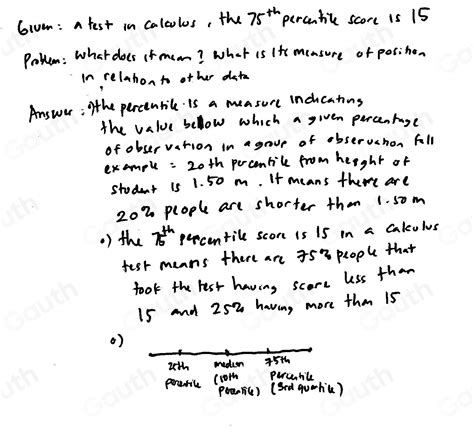 Given: a test in calculus, the 75th percentile score is 15
Problem: what does it mean? what is its measure of position
in relation to other data
Answer: •) the percentile is a measure indicating
the value below which a given percentage
of observation in a group of observation fall
example = 20th percentile from height of
student is 1.50 m. It means there are
20% people are shorter than 1.50 m
•) the 75th percentile score is 15 in a calculus
test means there are 75% people that
took the test having score less than
15 and 25% having more than 15
•)
median 75th
percentile percentile
(3rd quartile)
Gauth